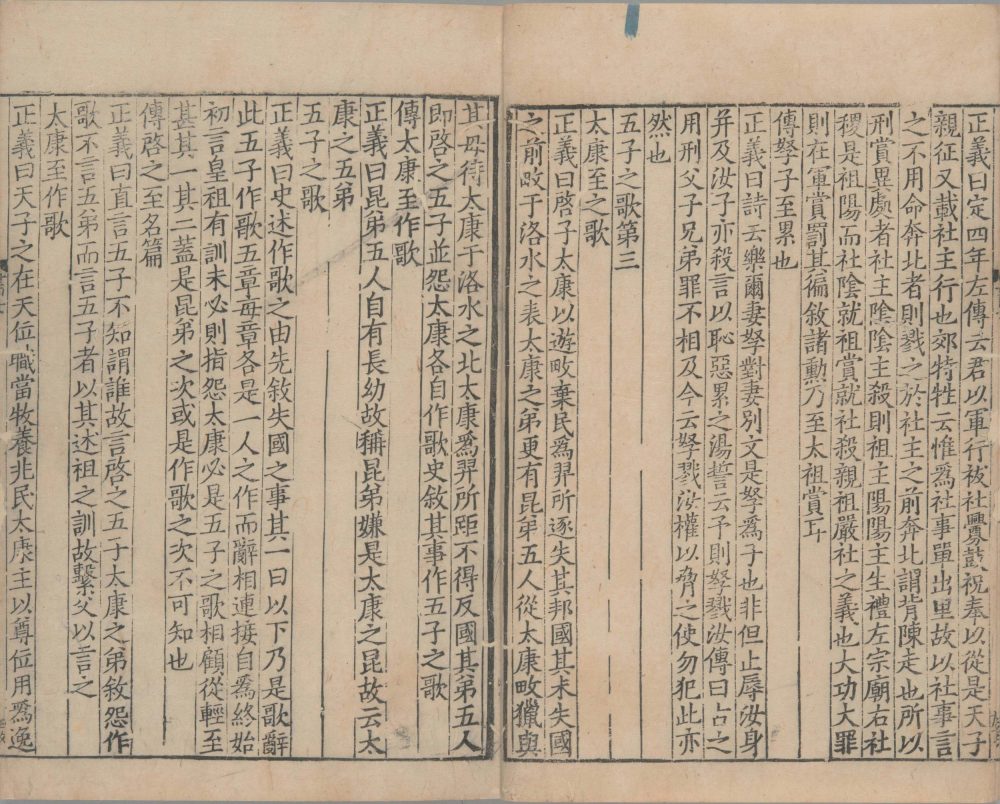 正義曰定四年左傳云君以軍行祓社釁鼓祝奉以從是天子
親征又載社主行也郊特牲云惟為社事單出里故以社事言
之不用命奔北者則戮之於社主之前奔北謂背陳走也所以
刑賞異處者社主陰陰主殺則祖主陽陽主生禮左宗廟右社
稷是祖陽而社陰就祖賞就社殺親祖嚴社之義也大功大罪
則在軍賞罰其徧敘諸勳乃至太祖賞耳
傳孥子至累也
正義曰詩云樂爾妻孥對妻別文是孥為子也非但止辱汝身
并及汝子亦殺言以恥惡累之湯誓云予則孥戮汝傳曰古之
用刑父子兄弟罪不相及今云孥戮汝權以脅之使勿犯此亦
然也
五子之歌第三
太康至之歌
正義曰啓子太康以遊畋棄民為羿所逐失其邦國其未失國
之前畋于洛水之表太康之弟更有昆弟五人從太康畋獵與
其母待太康于洛水之北太康為羿所距不得反國其弟五人
即啓之五子並怨太康各自作歌史敘其事作五子之歌
傳太康至作歌
正義曰昆弟五人自有長幼故稱昆弟嫌是太康之昆故云太
康之五弟
五子之歌
正義曰史述作歌之由先敘失國之事其一曰以下乃是歌辭
此五子作歌五章每章各是一人之作而辭相連接自為終始
初言皇祖有訓未必則指怨太康必是五子之歌相顧從輕至
甚其一其二蓋是昆弟之次或是作歌之次不可知也
傳啓之至名篇
正義曰直言五子不知謂誰故言啓之五子太康之弟敘怨作
歌不言五弟而言五子者以其述祖之訓故繫父以言之
太康至作歌
正義曰天子之在天位職當牧養兆民太康主以尊位用為逸